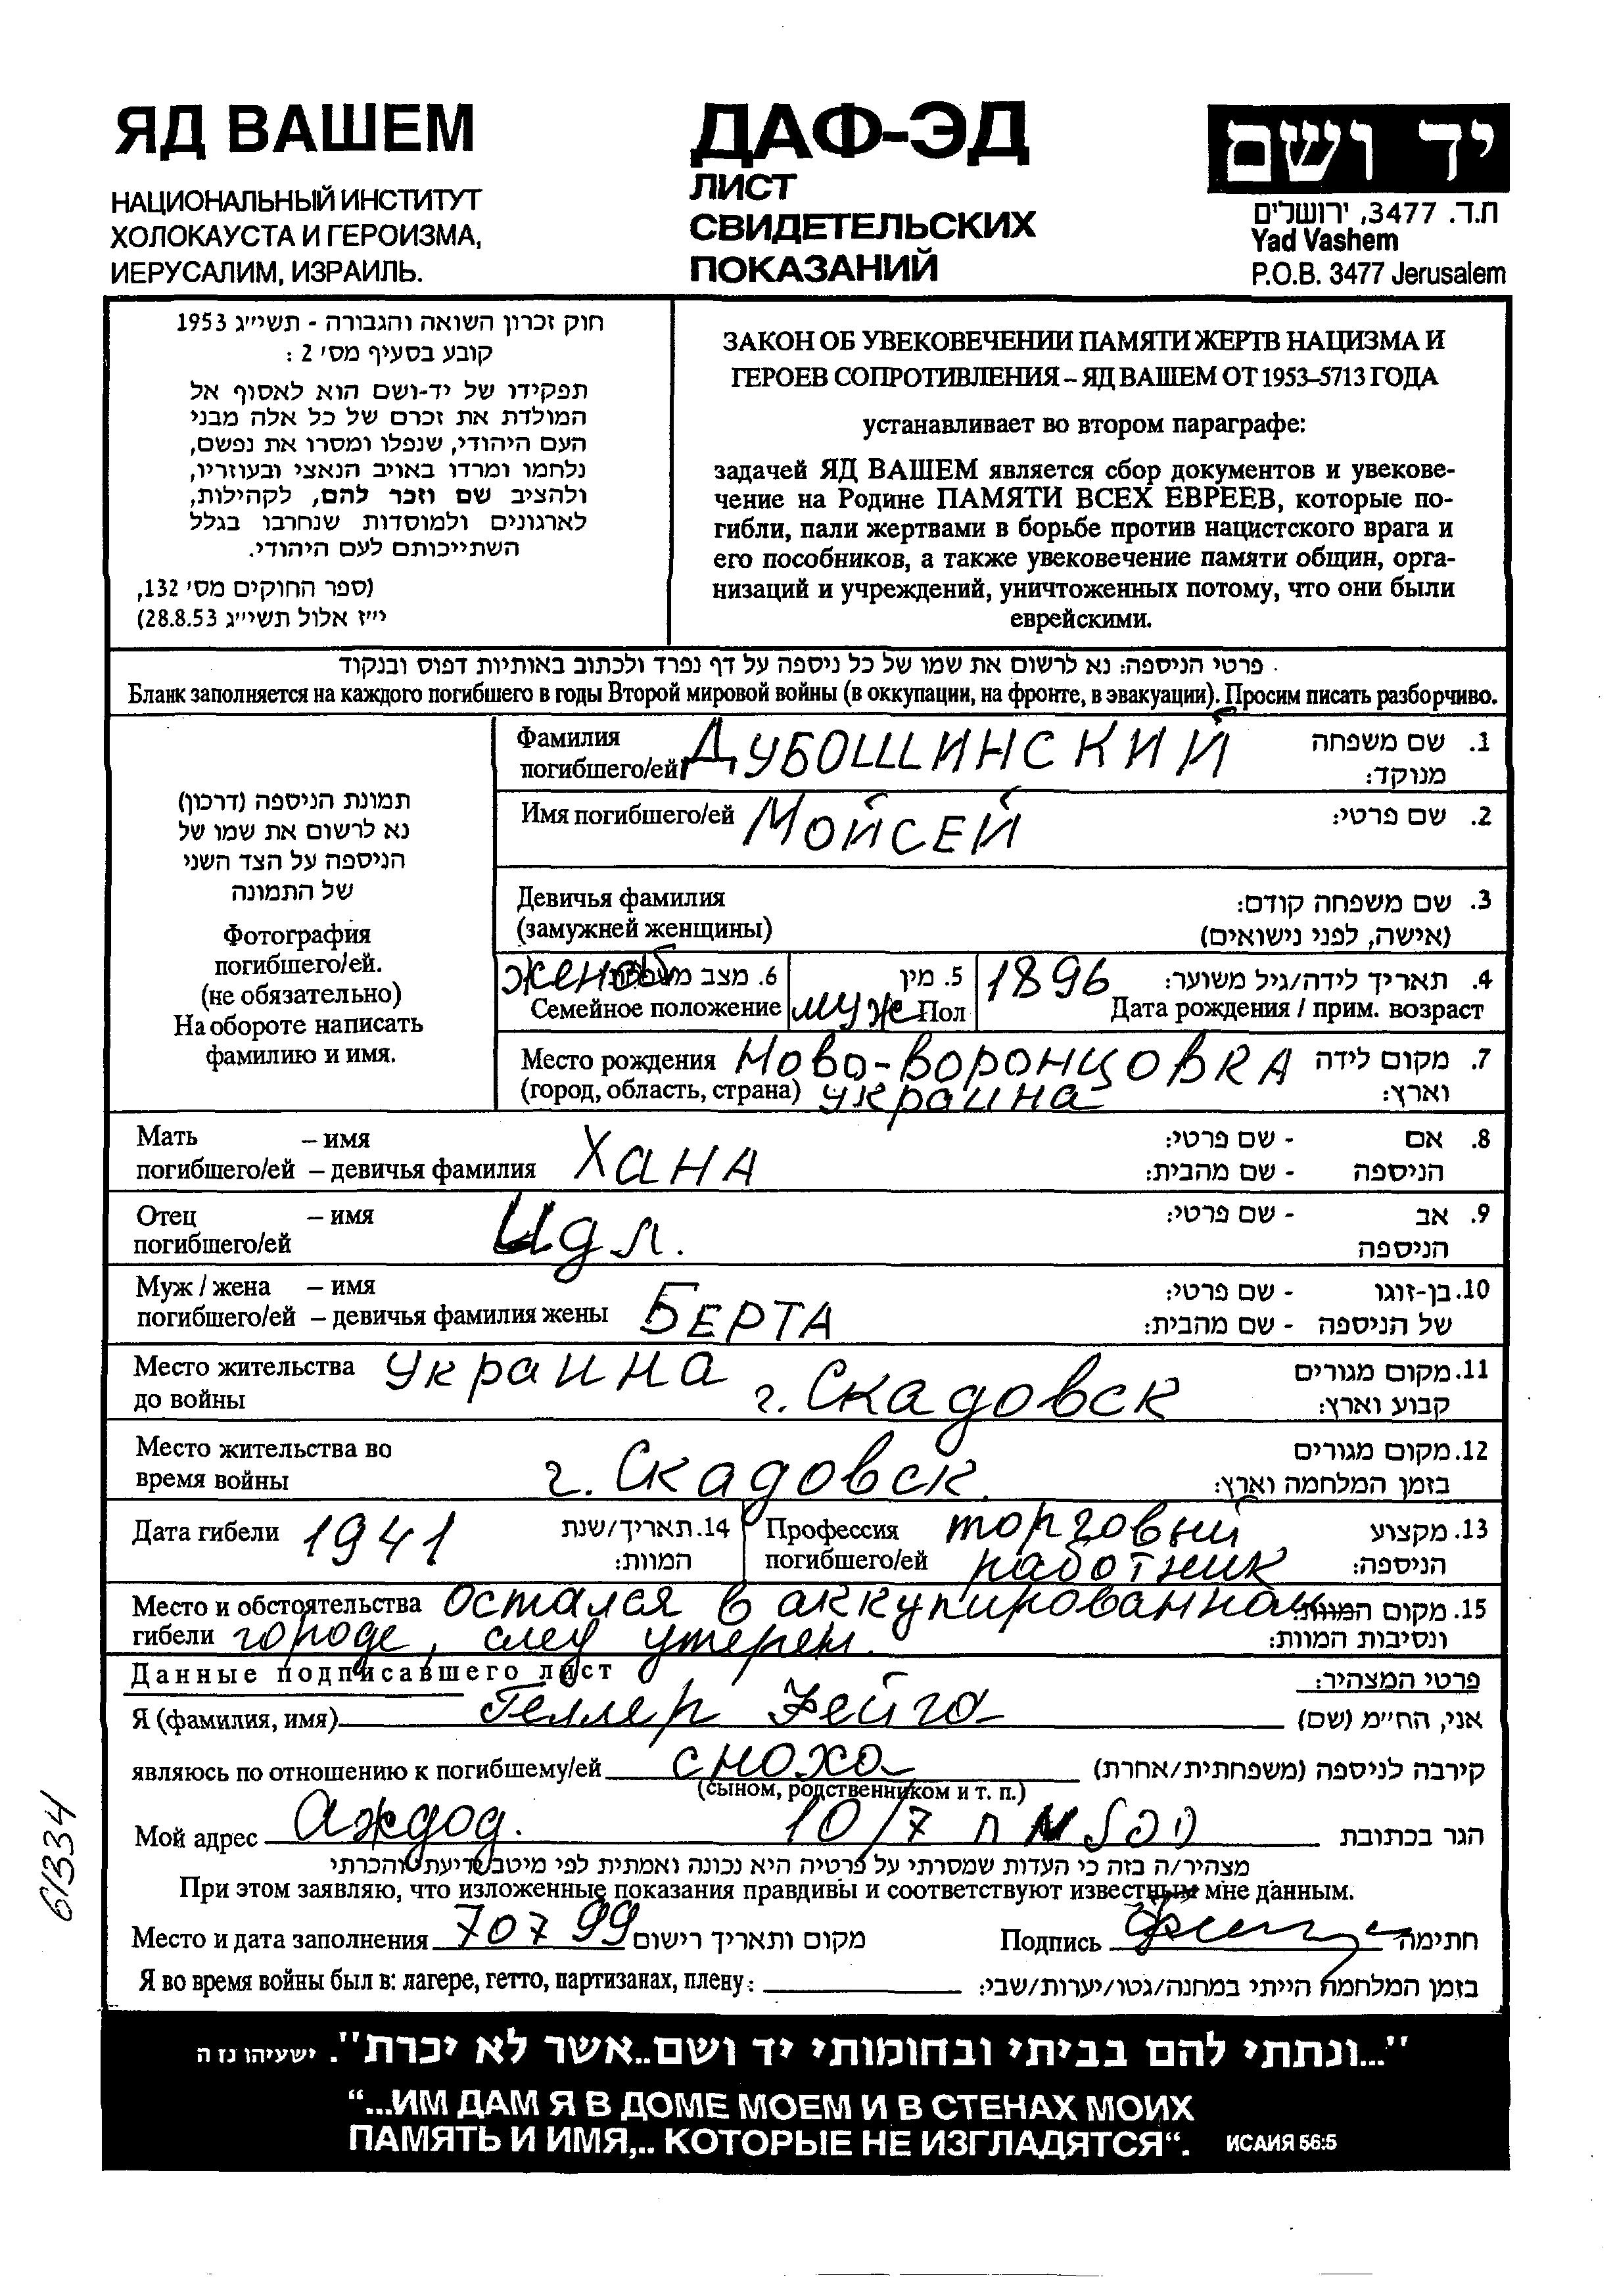 ЯД ВАШЕМ
НАЦИОНАЛЬНЫЙ ИНСТИТУТ
ХОЛОКАУСТА И ГЕРОИЗМА,
ИЕРУСАЛИМ, ИЗРАИЛЬ.
ДАФ-ЭД
ЛИСТ
СВИДЕТЕЛЬСКИХ
ПОКАЗАНИЙ
יד ושם
ת.ד. 3477, ירושלים
Yad Vashem
P.O.B. 3477 Jerusalem
חוק זכרון השואה והגבורה - תשי״ג 1953
קובע בסעיף מס׳ 2 :
תפקידו של יד-ושם הוא לאסוף אל
המולדת את זכרם של כל אלה מבני
העם היהודי, שנפלו ומסרו את נפשם,
נלחמו ומרדו באויב הנאצי ובעוזריו,
ולהציב שם וזכר להם, לקהילות,
לארגונים ולמוסדות שנחרבו בגלל
השתייכותם לעם היהודי.
(ספר החוקים מס׳ 132,
י״ז אלול תשי״ג 28.8.53)
ЗАКОН ОБ УВЕКОВЕЧЕНИИ ПАМЯТИ ЖЕРТВ НАЦИЗМА И
ГЕРОЕВ СОПРОТИВЛЕНИЯ – ЯД ВАШЕМ ОТ 1953–5713 ГОДА
устанавливает во втором параграфе:
задачей ЯД ВАШЕМ является сбор документов и увекове-
чение на Родине ПАМЯТИ ВСЕХ ЕВРЕЕВ, которые по-
гибли, пали жертвами в борьбе против нацистского врага и
его пособников, а также увековечение памяти общин, орга-
низаций и учреждений, уничтоженных потому, что они были
еврейскими.
פרטי הניספה: נא לרשום את שמו של כל ניספה על דף נפרד ולכתוב באותיות דפוס ובנקוד
Бланк заполняется на каждого погибшего в годы Второй мировой войны (в оккупации, на фронте, в эвакуации). Просим писать разборчиво.
תמונת הניספה (דרכון)
נא לרשום את שמו של
הניספה על הצד השני
של התמונה
Фотография
погибшего/ей.
(не обязательно)
На обороте написать
фамилию и имя.
Фамилия ДУБОШИНСКИЙ 1. שם משפחה
погибшего/ей מנוקד:
Имя погибшего/ей МОЙСЕЙ 2. שם פרטי:
Девичья фамилия 3. שם משפחה קודם:
(замужней женщины) (אישה, לפני נישואים)
женат 6. מצב משפחתי: 5. מין 1896 4. תאריך לידה/גיל משוער:
Семейное положение муж Пол Дата рождения / прим. возраст
Место рождения Ново-Воронцовка 7. מקום לידה
(город, область, страна) украина וארץ:
Мать – имя - שם פרטי: 8. אם
погибшего/ей – девичья фамилия ХАНА - שם מהבית: הניספה
Отец – имя Идл. - שם פרטי: 9. אב
погибшего/ей הניספה
Муж / жена – имя - שם פרטי: 10. בן-זוגו
погибшего/ей – девичья фамилия жены БЕРТА - שם מהבית: של הניספה
Место жительства Украина 11. מקום מגורים
до войны г. Скадовск קבוע וארץ:
Место жительства во 12. מקום מגורים
время войны г. Скадовск. בזמן המלחמה וארץ:
Дата гибели 1941 14. תאריך/שנת Профессия торговый 13. מקצוע
המוות: погибшего/ей работник הניספה:
Место и обстоятельства остался в аккупированном 15. מקום המוות
гибели городе, след утерен. ונסיבות המוות:
Данные подписавшего лист פרטי המצהיר:
Я (фамилия, имя) Геллер Фейга אני, הח״מ (שם)
являюсь по отношению к погибшему/ей сноха קירבה לניספה (משפחתית/אחרת)
(сыном, родственником и т. п.)
Мой адрес Аждод. 10/7 הגר בכתובת
מצהיר/ה בזה כי העדות שמסרתי על פרטיה היא נכונה ואמתית לפי מיטב ידיעתי והכרתי
При этом заявляю, что изложенные показания правдивы и соответствуют известным мне данным.
Место и дата заполнения 70799 מקום ותאריך רישום Подпись חתימה
Я во время войны был в: лагере, гетто, партизанах, плену: בזמן המלחמה הייתי במחנה/גטו/יערות/שבי:
61334
"...ונתתי להם בביתי ובחומותי יד ושם..אשר לא יכרת". ישעיהו נז ה
“...ИМ ДАМ Я В ДОМЕ МОЕМ И В СТЕНАХ МОИХ
ПАМЯТЬ И ИМЯ,.. КОТОРЫЕ НЕ ИЗГЛАДЯТСЯ“. ИСАИЯ 56:5